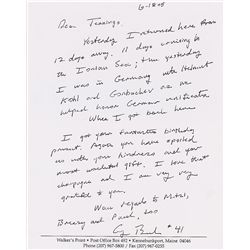 6-18-05
Dear Jennings,
Yesterday I returned here from
12 days away. 11 days cruising in
the Ionian Sea; then yesterday
I was in Germany with Helmut
Kohl and Gorbachev as we
helped honor German unification
When I got back here
I got your fantastic birthday
present. Again you have spoiled
me with your kindness and your
most wonderful gifts. I love that
champagne and I am very very
grateful to you.
Warm regards to Mitzi,
and Paul, too
G Bush #41
Walker's Point • Post Office Box 492 • Kennebunkport, Maine 04046
Phone (207) 967-5800 / Fax (207) 967-0235